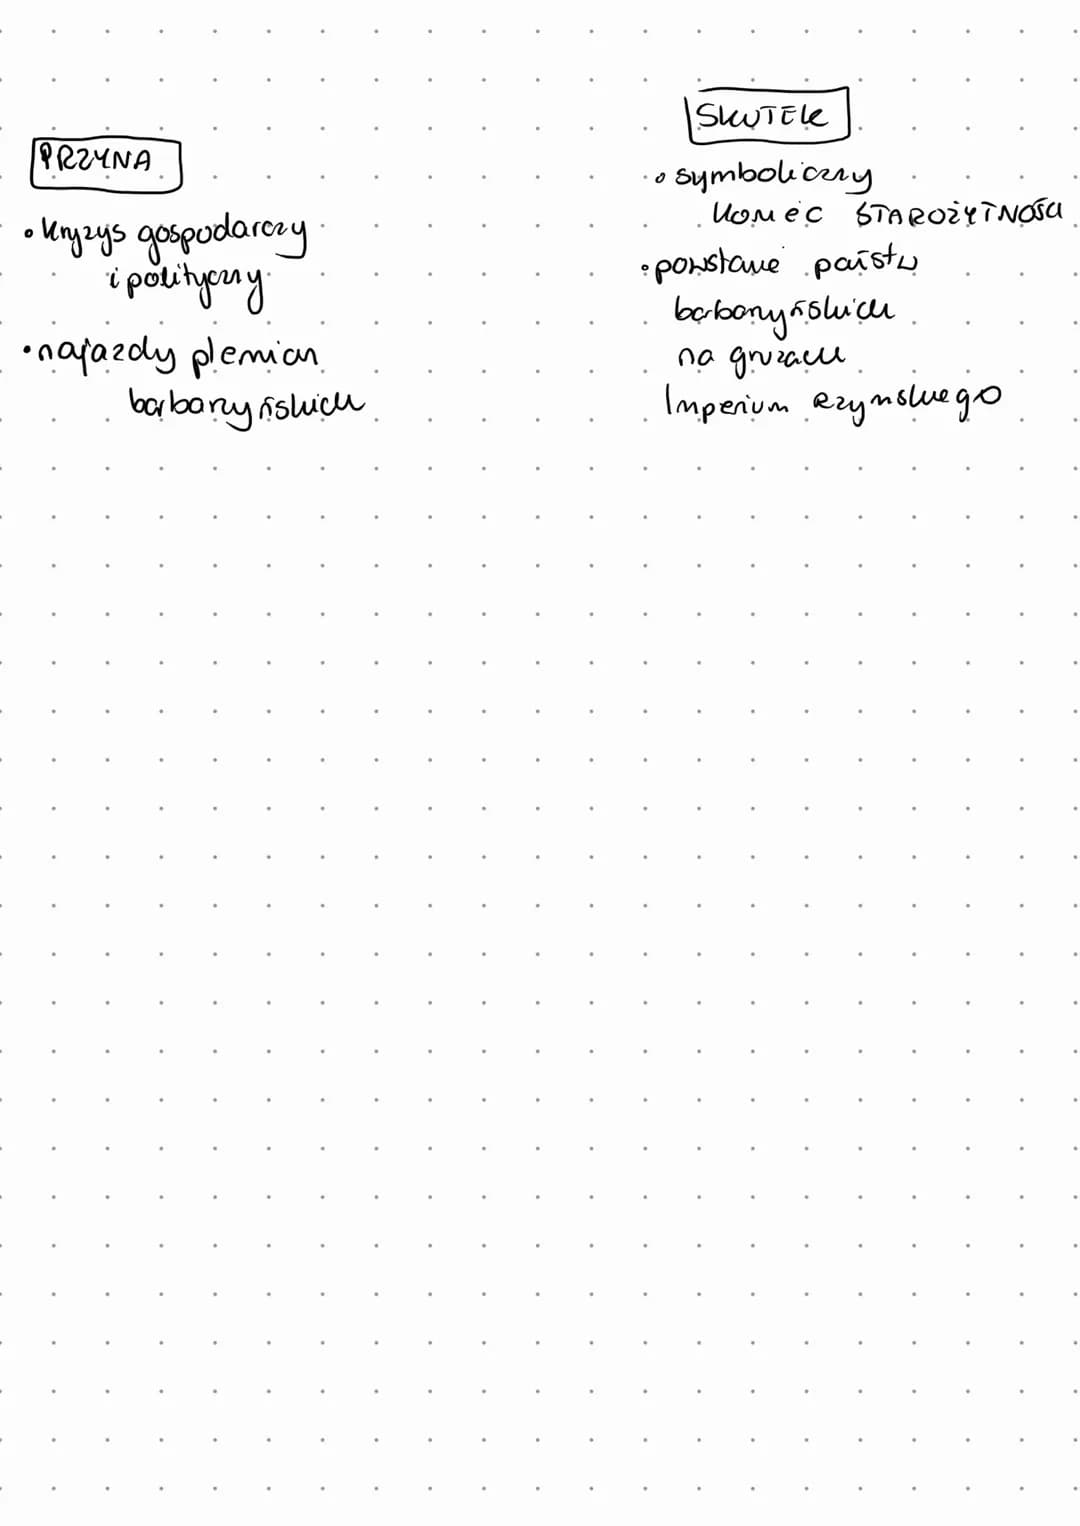 PRZYNA
• kryzys gospodarczy
i polityczny
• najazdy plemion
barbarzyńskich
SKUTEK
• symboliczny
koniec STAROŻYTNOŚCI
• powstanie państw
barbarzyńskich
na gruzach
Imperium Rzymskiego